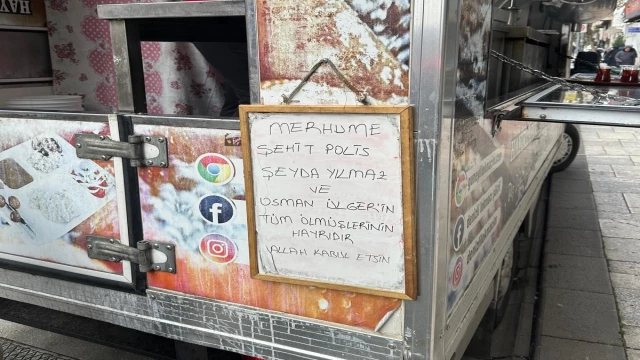 MERHUME
ŞEHİT POLİS
ŞEYDA YILMAZ
VE
OSMAN ÜLGER'İN
TÜM ÖLMÜŞLERİNİN
HAYRIDIR
ALLAH KABUL ETSİN
HAY